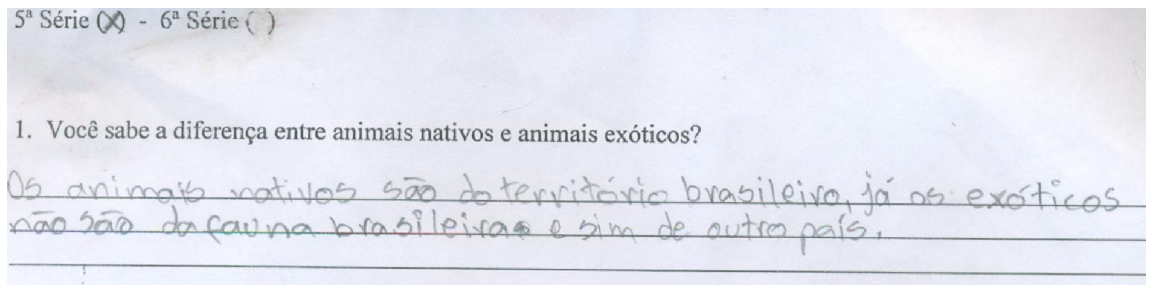 5ª Série (X) - 6ª Série ( )
1. Você sabe a diferença entre animais nativos e animais exóticos?
Os animais nativos são do território brasileiro, já os exóticos
não são da fauna brasileira e sim de outro país.